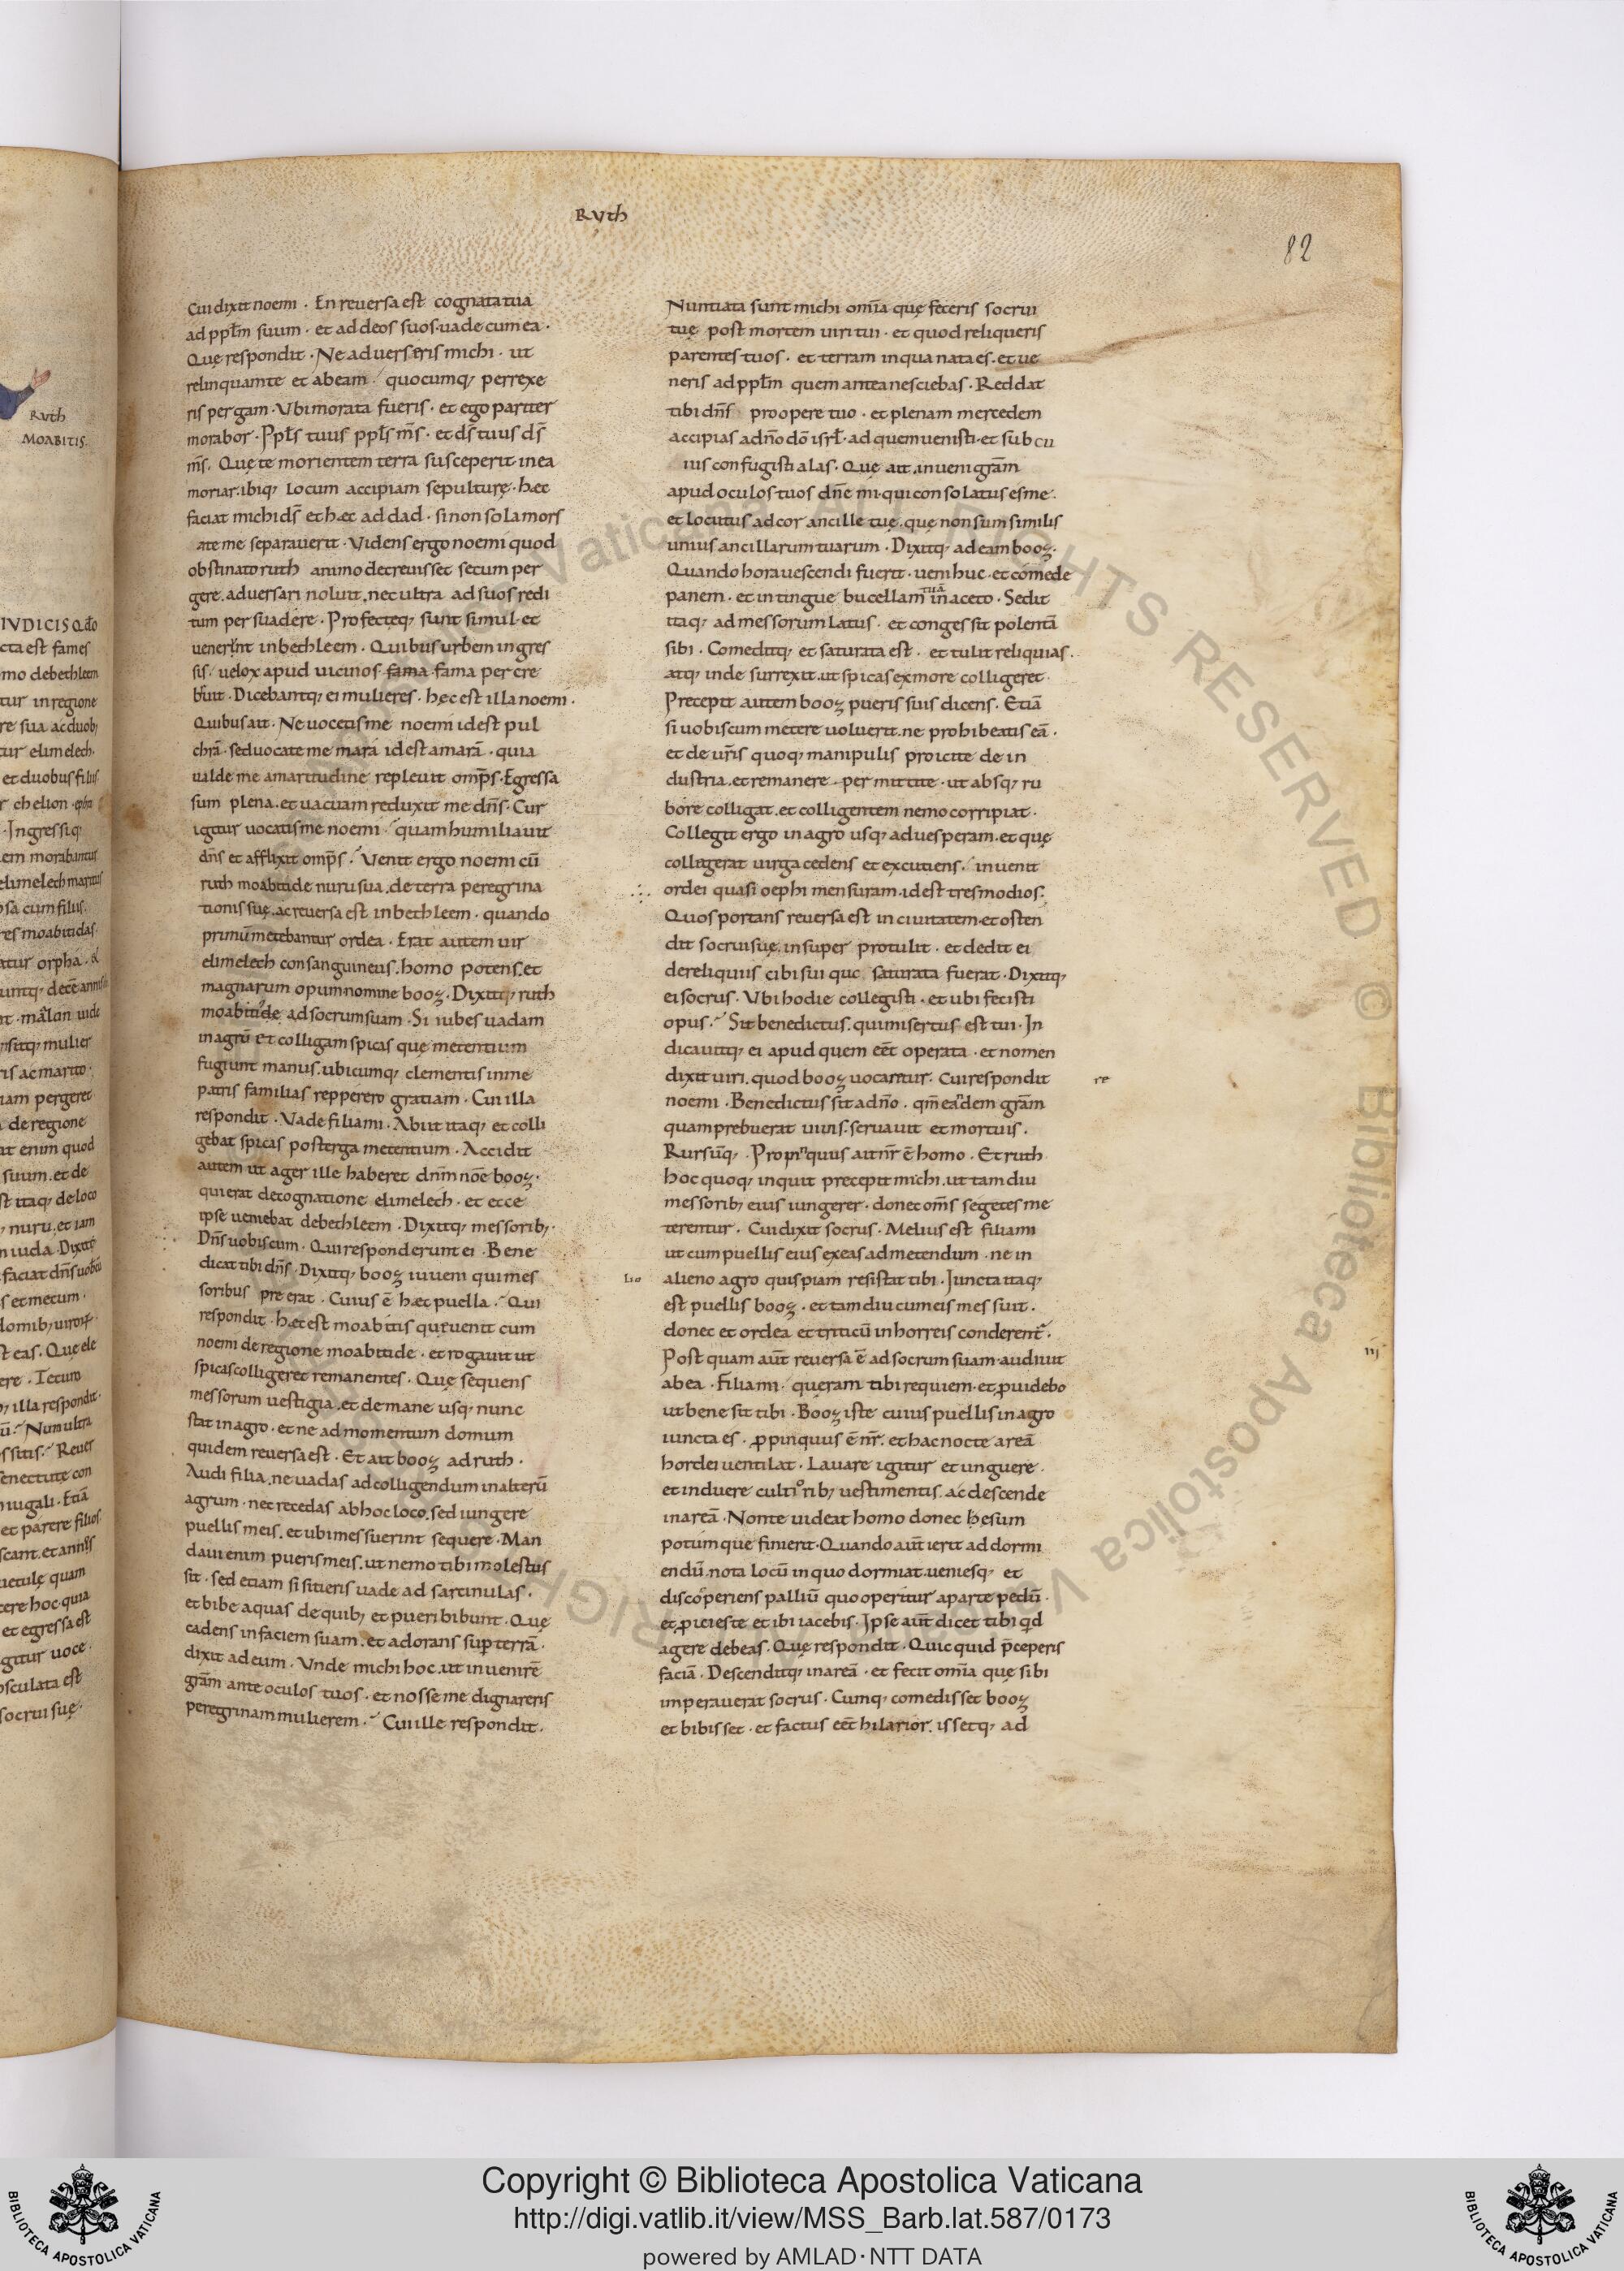 RVth
82
Cui dixit noemi · En reuersa est cognata tua
ad ppłm suum · et ad deos suos · uade cum ea ·
Quę respondit · Ne aduerseris michi · ut
relinquam te et abeam · quocumq; perrexe
ris pergam · Vbi morata fueris · et ego pariter
morabor · Ppłs tuus ppłs m̄s · et d̄s tuus d̄s
m̄s · Quę te morientem terra susceperit · in ea
moriar · ibiq; locum accipiam sepulturę · hæc
faciat michi d̄s et hæc addad · si non sola mors
a te me separauerit · Videns ergo noemi quod
obstinato ruth animo decreuisset secum per
gere · aduersari noluit · nec ultra ad suos redi
tum persuadere · Profecteq; sunt simul · et
uenerunt in bethleem · Quibus urbem ingres
sis · uelox apud uicinos fama fama percre
buit · Dicebantq; ei mulieres · hęc est illa noemi ·
Quibus ait · Ne uocetis me noemi idest pul
chrā · sed uocate me mara idest amarā · quia
ualde me amaritudine repleuit omp̄s · Egressa
sum plena · et uacuam reduxit me dn̄s · Cur
igitur uocatis me noemi · quam humiliauit
dn̄s et afflixit omp̄s · Venit ergo noemi cū
ruth moabitide nuru sua · de terra peregrina
tionis suę · ac reuersa est in bethleem · quando
primū metebantur ordea · Erat autem uir
elimelech consanguineus · homo potens · et
magnarum opum nomine booz · Dixitq; ruth
moabitide ad socrum suam · Si iubes uadam
in agrū et colligam spicas quę metentium
fugiunt manus · ubicumq; clementis in me
patris familias repperero gratiam · Cui illa
respondit · Vade filia mi · Abiit itaq; et colli
gebat spicas post terga metentium · Accidit
autem ut ager ille haberet dn̄m nōe booz ·
qui erat de cognatione elimelech · et ecce
ipse ueniebat de bethleem · Dixitq; messorib; ·
Dn̄s uobiscum · Qui responderunt ei · Bene
dicat tibi dn̄s · Dixitq; booz iuueni qui mes
soribus preerat · Cuius ē hæc puella · Qui
respondit · hæc est moabitis quę uenit cum
noemi de regione moabitide · et rogauit ut
spicas colligeret remanentes · Quę sequens
messorum uestigia · et de mane usq; nunc
stat in agro · et ne ad momentum domum
quidem reuersa est · Et ait booz ad ruth ·
Audi filia · ne uadas ad colligendum in alterū
agrum · nec recedas ab hoc loco · sed iungere
puellis meis · et ubi messuerint sequere · Man
daui enim pueris meis · ut nemo tibi molestus
sit · sed etiam si sitieris uade ad sarcinulas ·
et bibe aquas de quib; et pueri bibunt · Quę
cadens in faciem suam · et adorans sup terrā ·
dixit ad eum · Vnde michi hoc · ut inuenirē
grām ante oculos tuos · et nosse me dignareris
peregrinam mulierem · Cui ille respondit ·
Nuntiata sunt michi om̄ia quę feceris socrui
tuę post mortem uiri tui · et quod reliqueris
parentes tuos · et terram in qua nata es · et ue
neris ad ppłm quem antea nesciebas · Reddat
tibi dn̄s pro opere tuo · et plenam mercedem
accipias a dn̄o dō isrł · ad quem uenisti · et sub cu
ius confugisti alas · Quę ait · inueni grām
apud oculos tuos dn̄e mi · qui consolatus es me ·
et locutus ad cor ancille tuę · quę non sum similis
unius ancillarum tuarum · Dixitq; ad eam booz ·
Quando hora uescendi fuerit · ueni huc · et comede
tuā
panem · et intingue bucellam in aceto · Sedit
itaq; ad messorum latus · et congessit polentā
sibi · Comeditq; et saturata est · et tulit reliquias ·
atq; inde surrexit · ut spicas ex more colligeret ·
Precepit autem booz pueris suis dicens · Etiā
si uobiscum metere uoluerit · ne prohibeatis eā ·
et de ur̄is quoq; manipulis proicite de in
dustria · et remanere permittite · ut absq; ru
bore colligat · et colligentem nemo corripiat ·
Collegit ergo in agro usq; ad uesperam · et quę
collegerat uirga cedens et excutiens · inuenit
ordei quasi oephi mensuram · idest tres modios ·
Quos portans reuersa est in ciuitatem · et osten
dit socrui suę · insuper protulit · et dedit ei
de reliquiis cibi sui quo saturata fuerat · Dixitq;
ei socrus · Vbi hodie collegisti · et ubi fecisti
opus · Sit benedictus · qui misertus est tui · In
dicauitq; ei apud quem eēt operata · et nomen
dixit uiri · quod booz uocaretur · Cui respondit
re
noemi · Benedictus sit a dn̄o · qm̄ eandem grām
quam prebuerat uiuis · seruauit et mortuis ·
Rursūq; · Propinquus ait nr̄ ē homo · Et ruth
hoc quoq; inquit precepit michi · ut tam diu
messorib; eius iungerer · donec om̄s segetes me
terentur · Cui dixit socrus · Melius est filia mi
ut cum puellis eius exeas ad metendum · ne in
alieno agro quispiam resistat tibi · Iuncta itaq;
est puellis booz · et tam diu cum eis messuit ·
donec et ordea et triticū in horreis conderent ·
Post quam aut̄ reuersa ē ad socrum suam · audiuit
iij
ab ea · Filia mi · queram tibi requiem · et puidebo
ut bene sit tibi · Booz iste cuius puellis in agro
iuncta es · ppinquus ē nr̄ · et hac nocte areā
hordei uentilat · Lauare igitur et unguere ·
et induere cultiorib; uestimentis · ac descende
in areā · Non te uideat homo donec hesum
potumque finierit · Quando aut̄ ierit ad dormi
endū · nota locū in quo dormiat · ueniesq; et
discoperiens palliū quo operitur a parte pedū ·
et picies te et ibi iacebis · Ipse aut̄ dicet tibi qd
agere debeas · Quę respondit · Quicquid p̄ceperis
faciā · Descenditq; in areā · et fecit om̄ia quę sibi
imperauerat socrus · Cumq; comedisset booz
et bibisset · et factus eēt hilarior · issetq; ad
RVth
MOABITIS
Copyright © Biblioteca Apostolica Vaticana
http://digi.vatlib.it/view/MSS_Barb.lat.587/0173
powered by AMLAD·NTT DATA
BIBLIOTECA APOSTOLICA VATICANA
BIBLIOTECA APOSTOLICA VATICANA